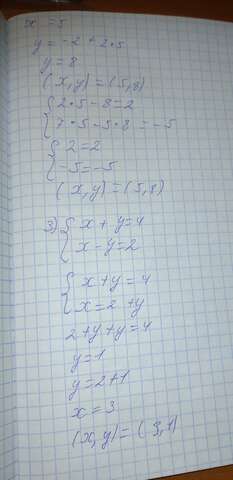 x = 5
y = -2 + 2·5
y = 8
(x,y) = (5,8)
{2·5 - 8 = 2
{7·5 - 5·8 = -5
{2 = 2
{-5 = -5
(x,y) = (5,8)
3) {x + y = 4
{x - y = 2
{x + y = 4
{x = 2 + y
2 + y + y = 4
y = 1
y = 2 + 1
x = 3
(x,y) = (3,1)